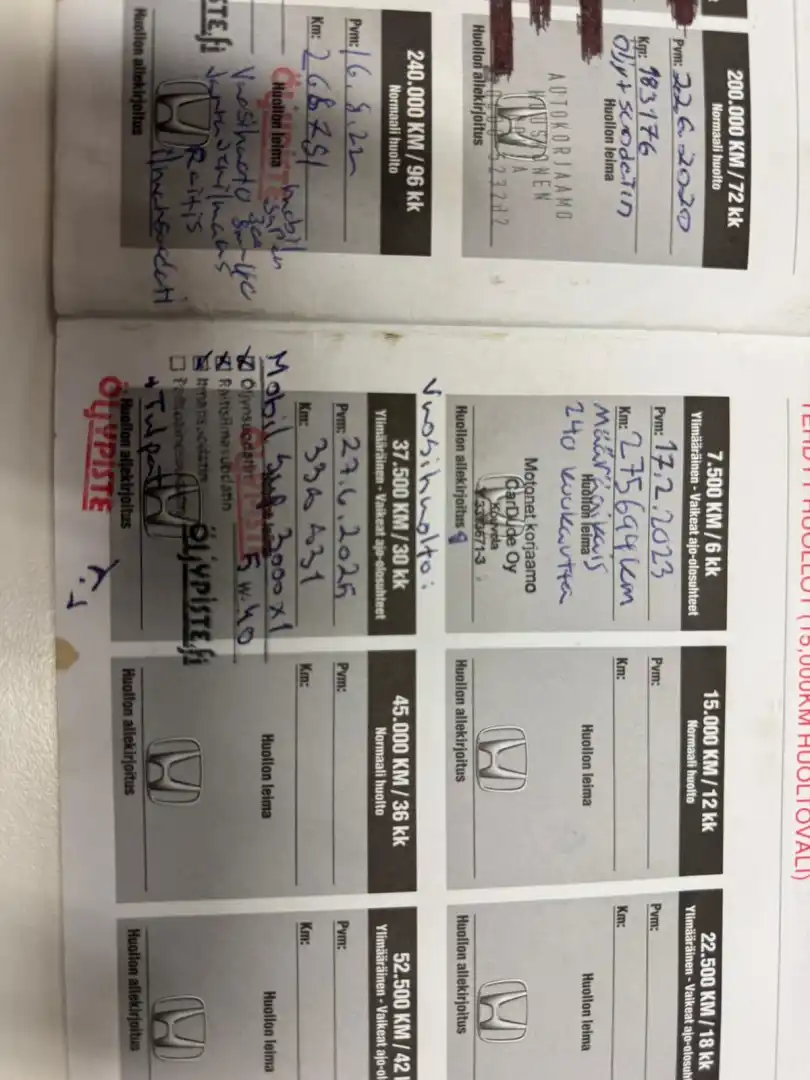 200.000 KM / 72 kk
Normaali huolto
Pvm: 22.6.2020
Km: 183176
Öljyt+suodatin
Huollon leima
AUTOKORJAAMO
Huollon allekirjoitus
240.000 KM / 96 kk
Normaali huolto
Pvm: 16.8.22
Km: 268751
Huollon leima
ÖLJYPISTE
mobil
Raitis
Huollon allekirjoitus
7.500 KM / 6 kk
Ylimääräinen - Vaikeat ajo-olosuhteet
Pvm: 17.2.2023
Km: 275694km
Huollon leima
määräaikais
240 kuukautta
Motonet korjaamo
CarDude Oy
Kouvola
Huollon allekirjoitus
15.000 KM / 12 kk
Normaali huolto
Pvm:
Km:
Huollon leima
Huollon allekirjoitus
22.500 KM / 18 kk
Ylimääräinen - Vaikeat ajo-olosuh
Pvm:
Km:
Huollon leima
Huollon allekirjoitus
Vuosihuolto:
37.500 KM / 30 kk
Ylimääräinen - Vaikeat ajo-olosuhteet
Pvm: 27.6.2025
Km:
Mobil 3000 x1
5w.40
Öljynsuodatin
Raitisilmansuodatin
Ilmansuodatin
+ Tulpat
ÖLJYPISTE.fi
Huollon allekirjoitus
ÖLJYPISTE
45.000 KM / 36 kk
Normaali huolto
Pvm:
Km:
Huollon leima
Huollon allekirjoitus
52.500 KM / 42
Ylimääräinen - Vaikeat ajo-ol
Pvm:
Km:
Huollon leima
Huollon allekirjoitus
HUOLLOT (15.000KM HUOLTOVÄLI)